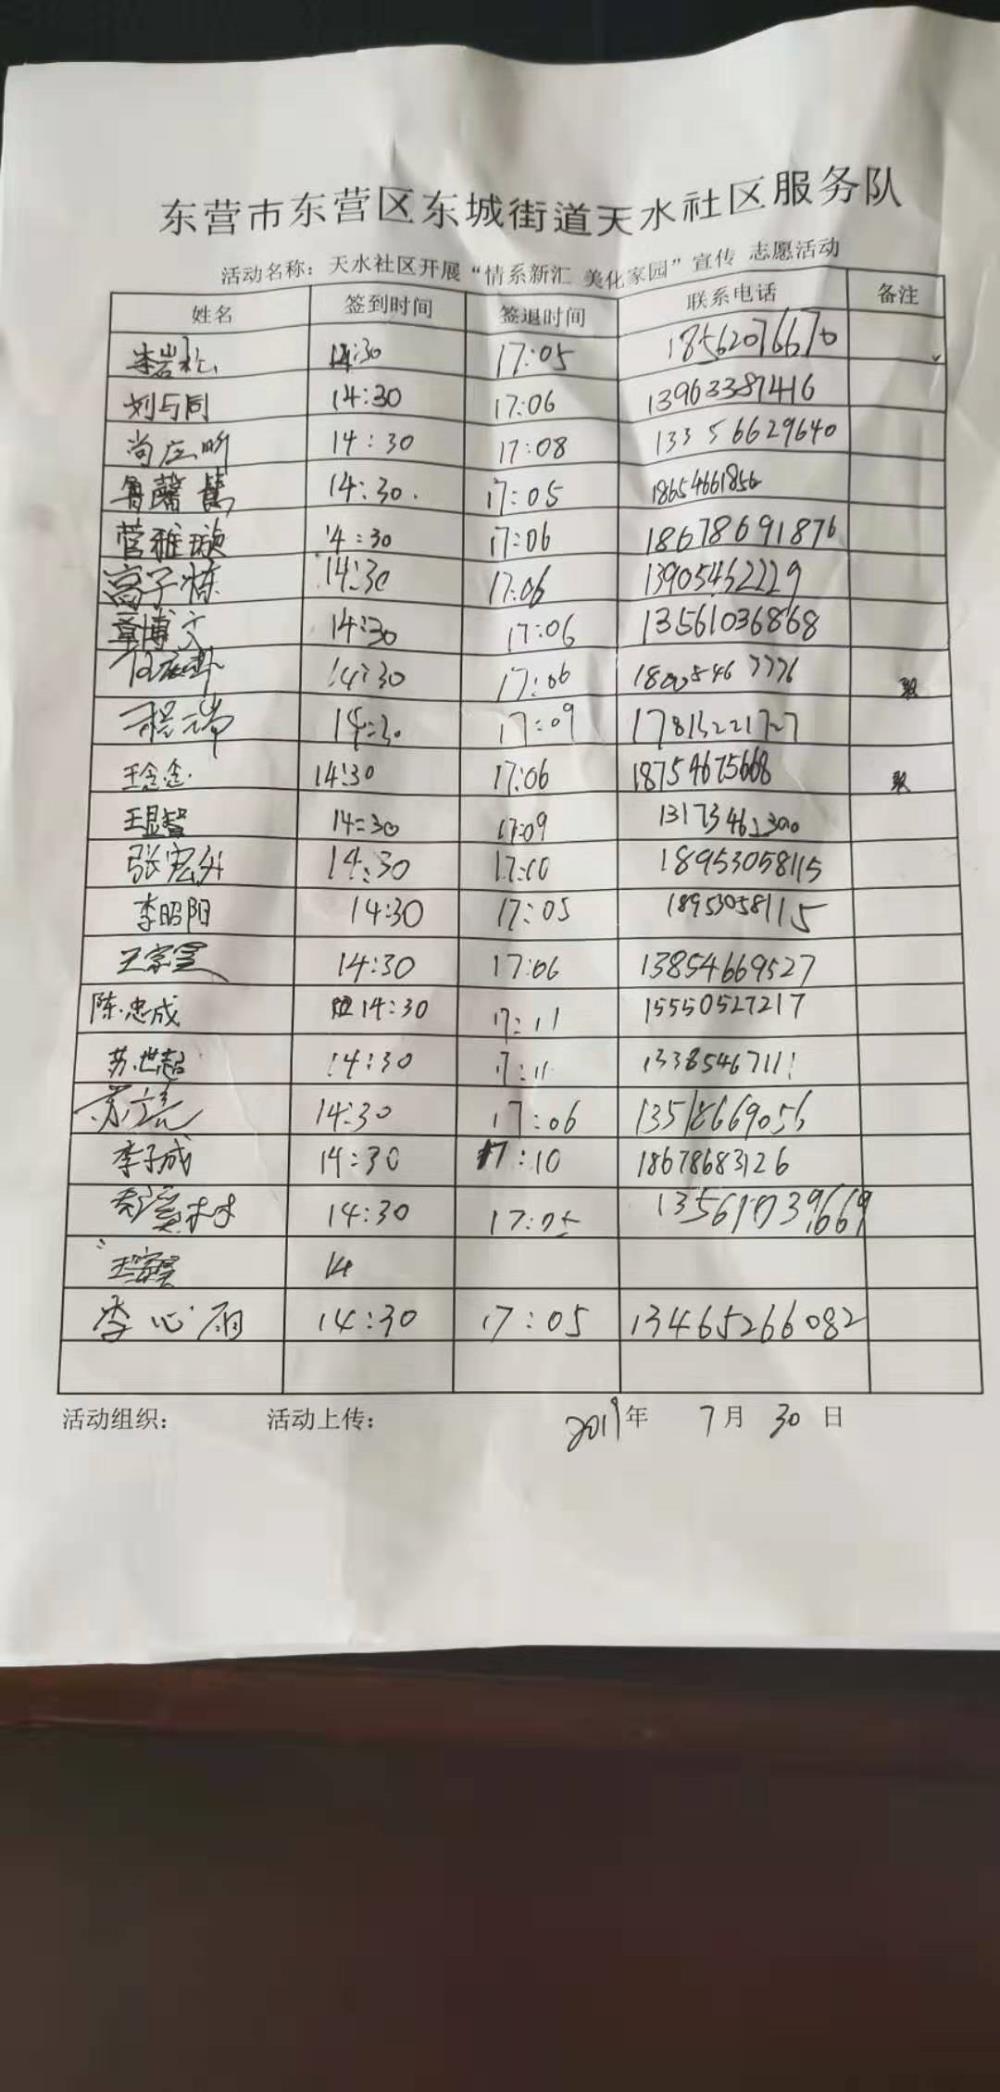 东营市东营区东城街道天水社区服务队
活动名称：天水社区开展“情系新汇 美化家园”宣传 志愿活动
姓名 签到时间 签退时间 联系电话 备注
李岩松 14:30 17:05 18562076670
刘与同 14:30 17:06 13963387416
尚应昕 14:30 17:08 13356629640
鲁馨 14:30. 17:05 18654661856
菅雅璇 14:30 17:06 18678691876
高子栋 14:30 17:06 13905462229
章博文 14:30 17:06 13561036868
14:30 17:06
程瑞 14:30 17:09 17813221727
王念念 14:30 17:06 18754675668
王显智 14:30 17:09
张宏升 14:30 17:10 18953058115
李昭阳 14:30 17:05 18953058115
王家宣 14:30 17:06 13854669527
陈忠成 14:30 17:11 15550527217
苏世超 14:30 17:11 13385467111
苏 14:30 17:06 13518669056
李子成 14:30 17:10 18678683126
14:30 17:05 13561039669
14
李心雨 14:30 17:05 13465266082
活动组织： 活动上传： 2019年 7月 30日